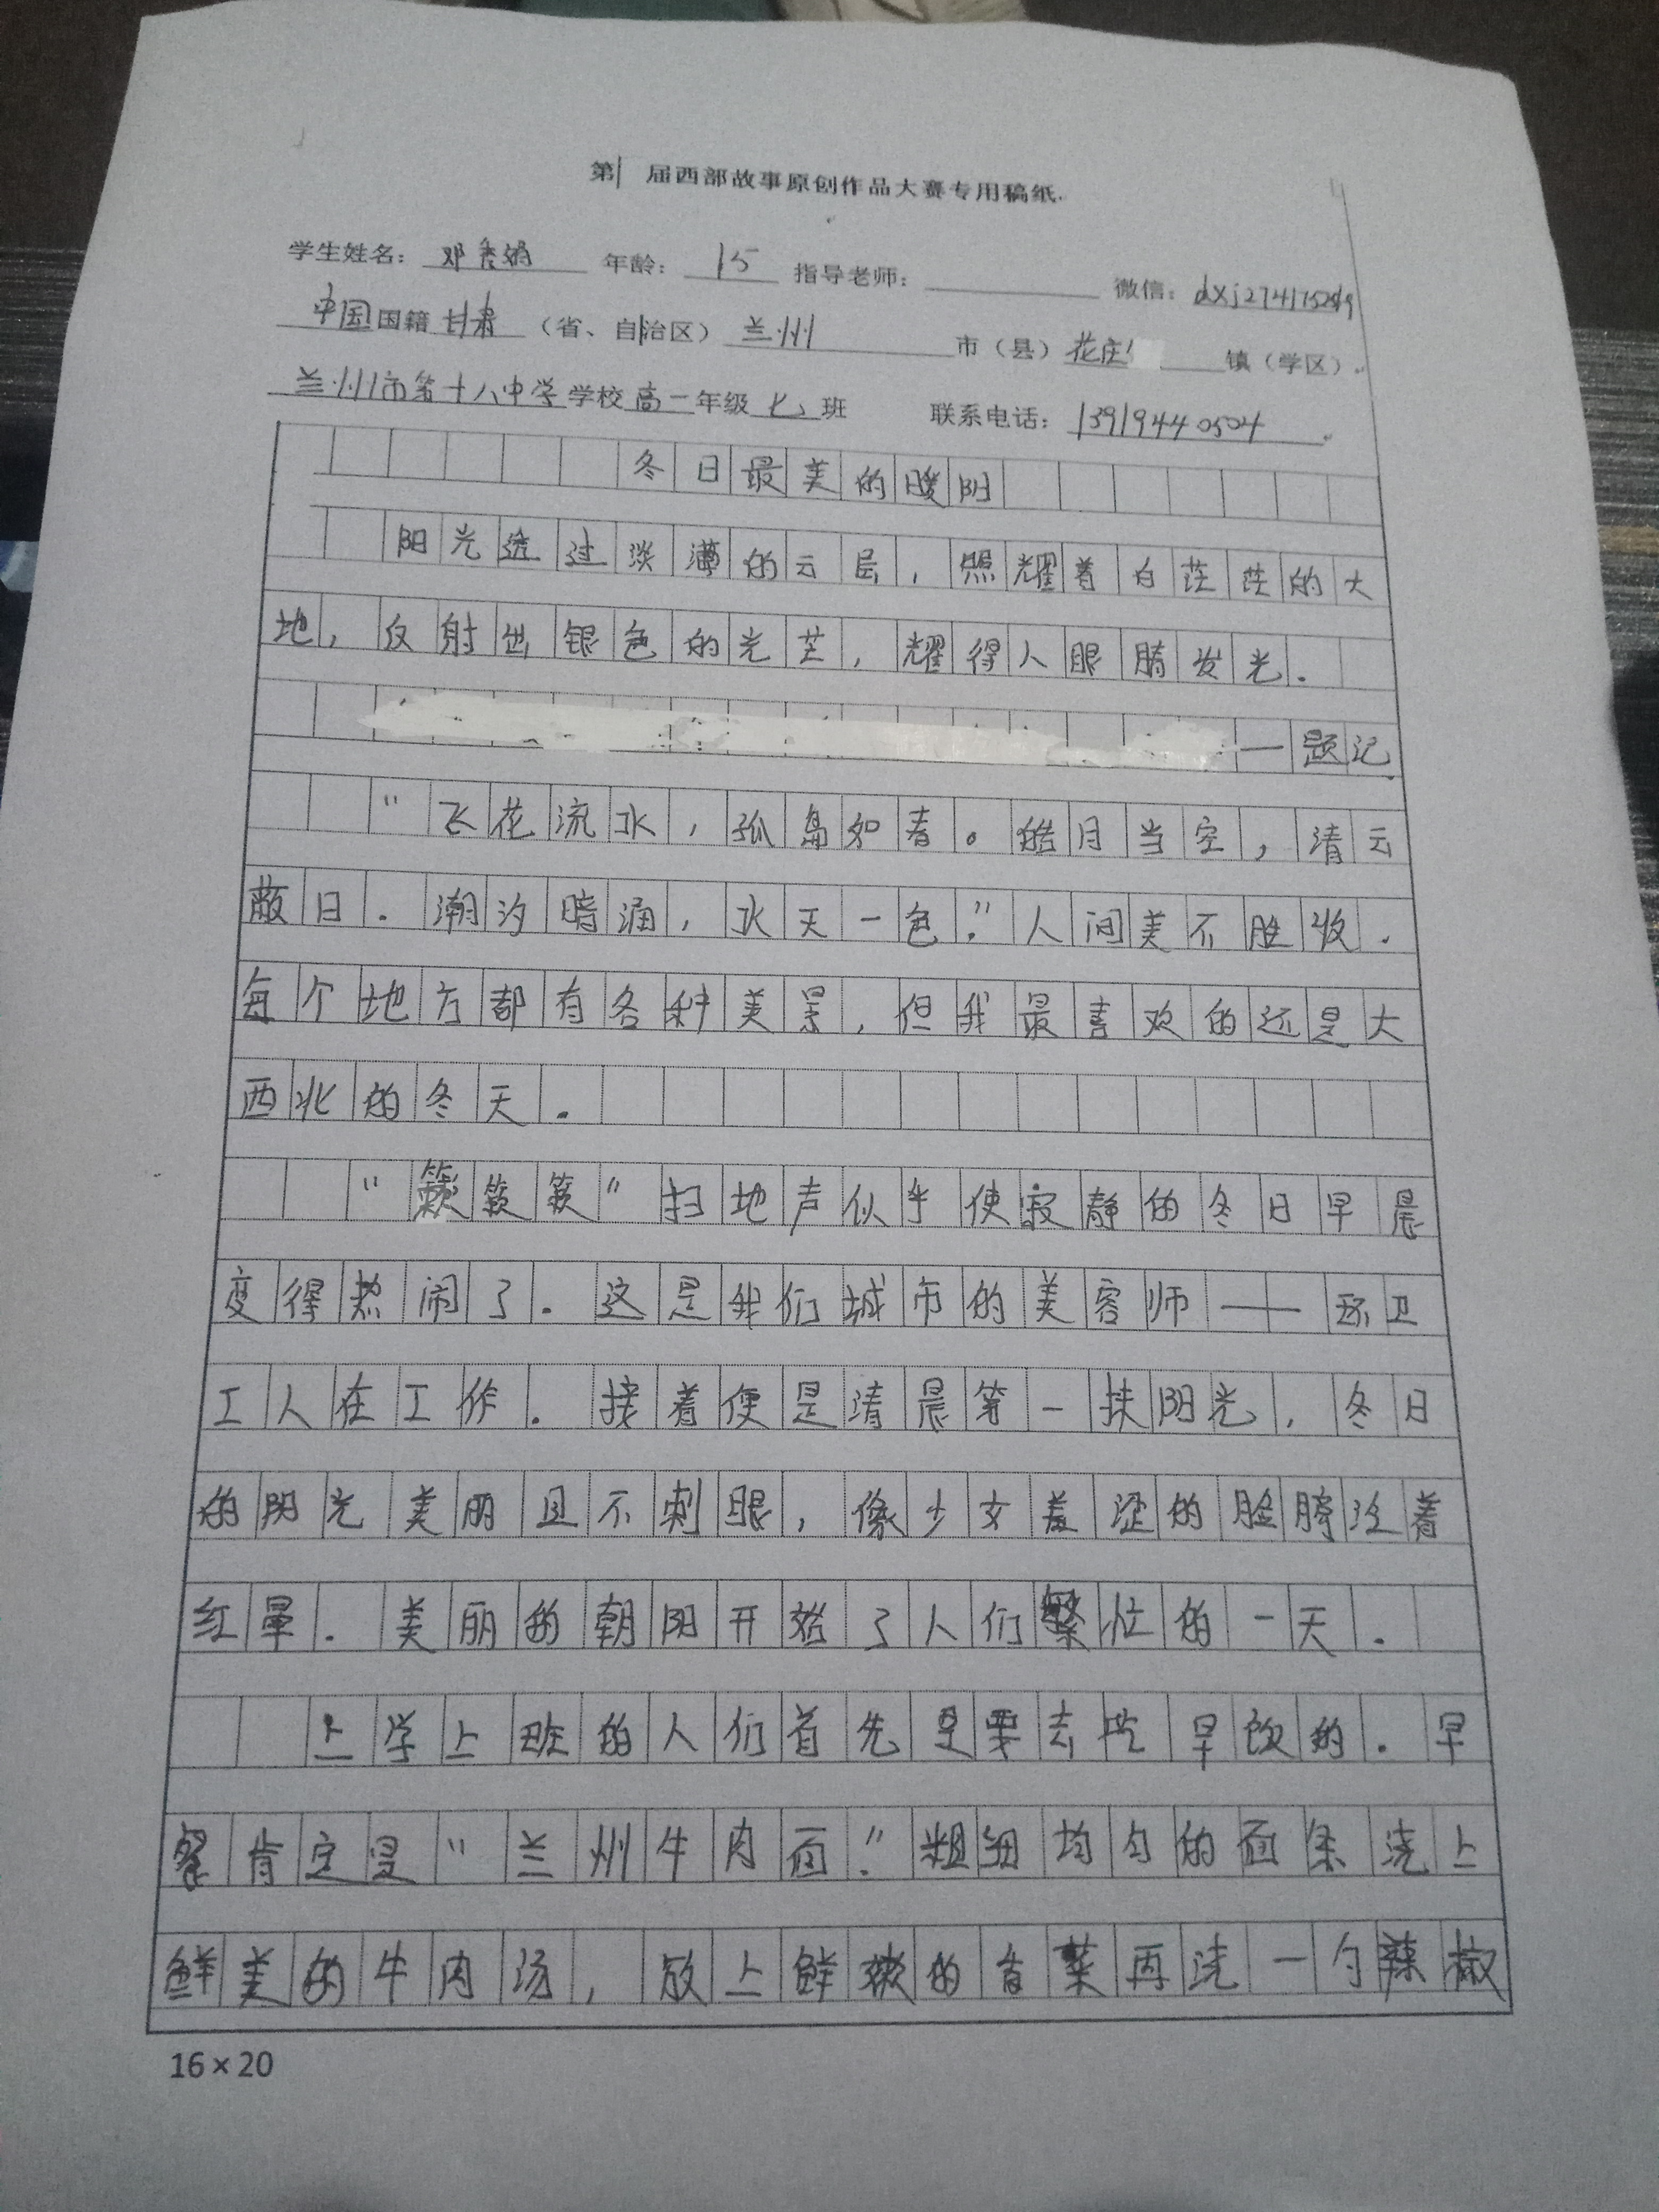 第 届西部故事原创作品大赛专用稿纸
学生姓名：邓秀娟 年龄：15 指导老师： 微信：
中国国籍 甘肃（省、自治区）兰州 市（县）花庄 镇（学区）
兰州市第十八中学学校高二年级七班 联系电话：13919440504
冬日最美的暖阳
阳光透过淡薄的云层，照耀着白茫茫的大
地，反射出银色的光芒，耀得人眼睛发光.
——题记
“飞花流水，孤岛如春。皓月当空，清云
蔽日.潮汐暗涌，水天一色.”人间美不胜收.
每个地方都有各种美景，但我最喜欢的还是大
西北的冬天.
“簌簌簌”扫地声似乎使寂静的冬日早晨
变得热闹了.这是我们城市的美容师——环卫
工人在工作.接着便是清晨第一抹阳光，冬日
的阳光美丽且不刺眼，像少女羞涩的脸膀泛着
红晕.美丽的朝阳开始了人们繁忙的一天.
上学上班的人们首先是要去吃早饭的.早
餐肯定是“兰州牛肉面.”粗细均匀的面条浇上
鲜美的牛肉汤，放上鲜嫩的香菜再浇一勺辣椒
16×20